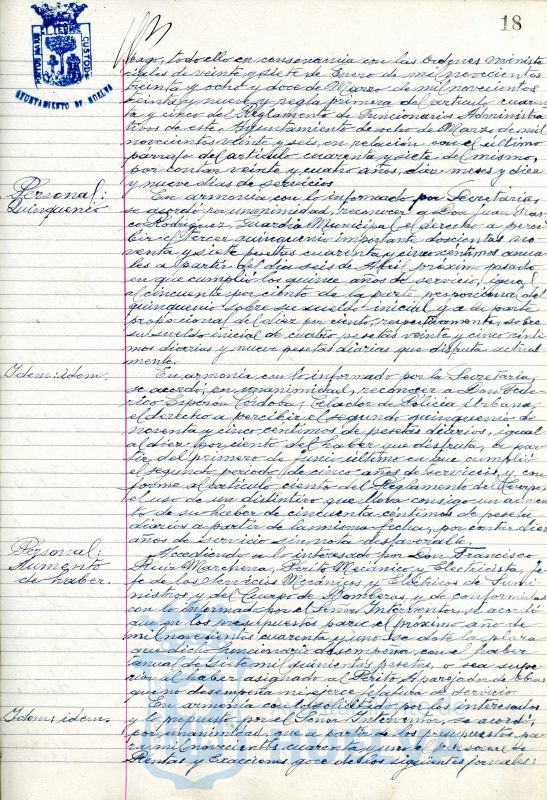 18
AYUNTAMIENTO DE HUELVA
bago, todo ello en consonancia con las Ordenes ministe
riales de veinte y siete de Enero de mil novecientos
treinta y ocho y doce de Marzo de mil novecientos
treinta y nueve y regla primera del artículo cuaren
ta y cinco del Reglamento de Funcionarios Administra
tivos de este Ayuntamiento de ocho de Marzo de mil
novecientos veinte y seis, en relación con el último
parrafo del artículo cuarenta y siete del mismo,
por contar veinte y cuatro años, diez meses y diez
y nueve dias de servicios.
Personal:
Quinquenio
En armonía con lo informado por Secretaría,
se acordó por unanimidad, reconocer a Don Juan
Rodriguez, Guardia Municipal el derecho a perci
bir el tercer quinquenio importante doscientas no
venta y siete pesetas cuarenta y cinco centimos anua
les a partir del dia seis de Abril próximo pasado
en que cumplió los quince años de servicio, igual
al cincuenta por ciento de la parte proporcional del
quinquenio sobre su sueldo inicial y a la parte
proporcional del diez por ciento, respectivamente, sobre
su sueldo inicial de cuatro pesetas veinte y cinco cénti
mos diarias y nueve pesetas diarias que disfruta actual
mente.
Idem: idem.
En armonía con lo informado por la Secretaría,
se acordó, en unanimidad, reconocer a Don Fede
rico Córdoba, Celador de Policia Urbana,
el derecho a percibir el segundo quinquenio de
noventa y cinco centimos de pesetas diarios, igual
al diez por ciento del haber que disfruta, a par
tir del primero de junio último en que cumplió
el segundo periodo de cinco años de servicios y, con
forme al artículo ciento del Reglamento del Cuerpo,
el uso de un distintivo que lleva consigo un aumen
to de su haber de cincuenta centimos de peseta
diarios a partir de la misma fecha, por contar diez
años de servicio sin nota desfavorable.
Personal:
Aumento
de haber.
Accediendo a lo interesado por Don Francisco
Ruiz Marchena, Perito Mecánico y Electricista, Je
fe de los Servicios Mecánicos y Eléctricos de Sumi
nistros y del Cuerpo de Bomberos, y de conformidad
con lo informado por el Señor Interventor, se acordó
que en los presupuestos para el próximo año de
mil novecientos cuarenta y uno se dote la plaza
que dicho funcionario desempeña, con el haber
anual de siete mil quinientas pesetas, o sea supe
rior al haber asignado al Perito Aparejador de Obras
que no desempeña ni ejerce jefatura de servicio.
Idem: idem.
En armonía con lo solicitado por los interesados
y lo propuesto por el Señor Interventor, se acordó,
por unanimidad, que a partir de los presupuestos pa
ra mil novecientos cuarenta y uno el personal de
Rentas y Exacciones goce de los siguientes jornales: